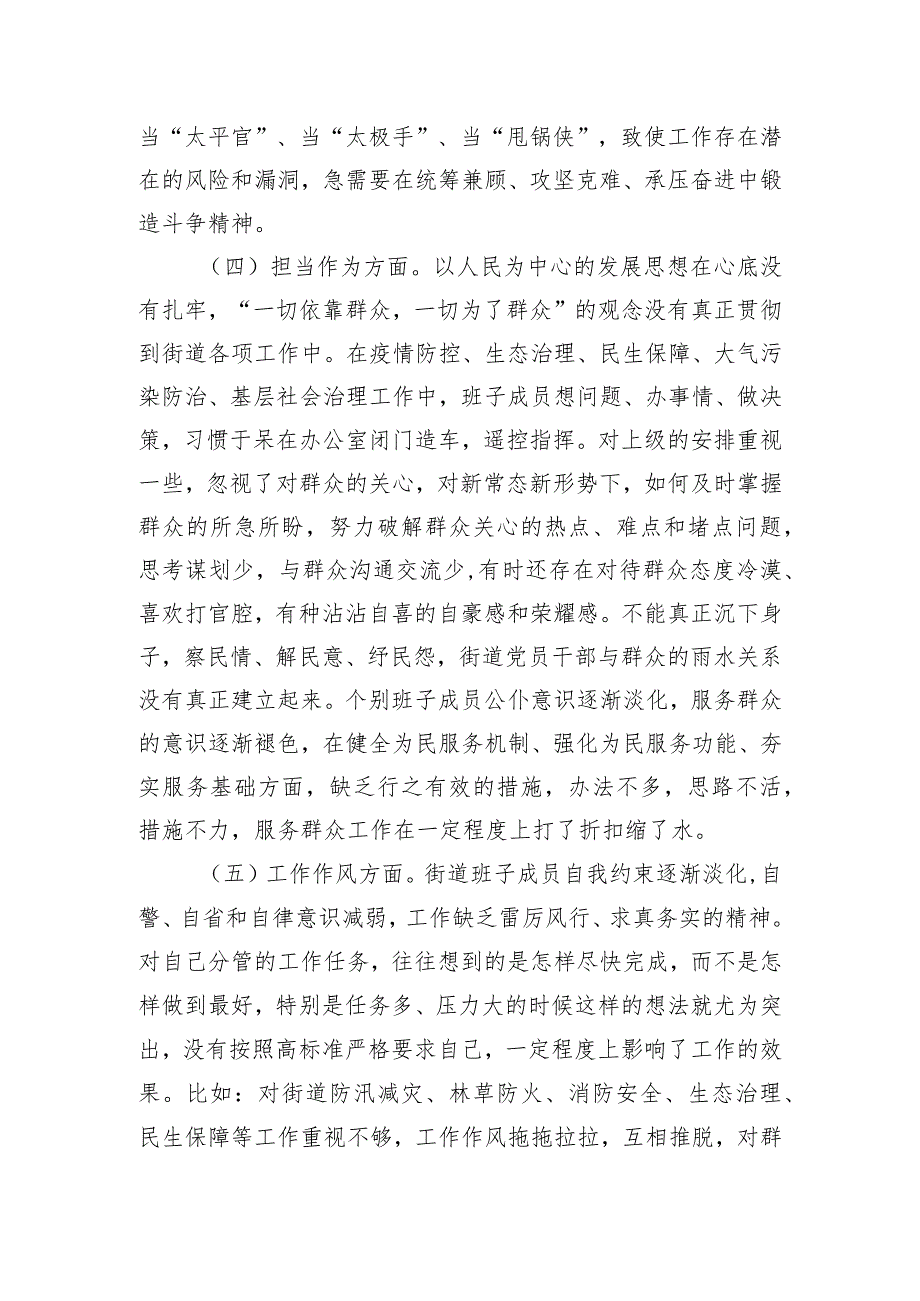 当“太平官”、当“太极手”、当“甩锅侠”，致使工作存在潜
在的风险和漏洞，急需要在统筹兼顾、攻坚克难、承压奋进中锻
造斗争精神。
（四）担当作为方面。以人民为中心的发展思想在心底没
有扎牢，“一切依靠群众，一切为了群众”的观念没有真正贯彻
到街道各项工作中。在疫情防控、生态治理、民生保障、大气污
染防治、基层社会治理工作中，班子成员想问题、办事情、做决
策，习惯于呆在办公室闭门造车，遥控指挥。对上级的安排重视
一些，忽视了对群众的关心，对新常态新形势下，如何及时掌握
群众的所急所盼，努力破解群众关心的热点、难点和堵点问题，
思考谋划少，与群众沟通交流少,有时还存在对待群众态度冷漠、
喜欢打官腔，有种沾沾自喜的自豪感和荣耀感。不能真正沉下身
子，察民情、解民意、纾民怨，街道党员干部与群众的雨水关系
没有真正建立起来。个别班子成员公仆意识逐渐淡化，服务群众
的意识逐渐褪色，在健全为民服务机制、强化为民服务功能、夯
实服务基础方面，缺乏行之有效的措施，办法不多，思路不活，
措施不力，服务群众工作在一定程度上打了折扣缩了水。
（五）工作作风方面。街道班子成员自我约束逐渐淡化,自
警、自省和自律意识减弱，工作缺乏雷厉风行、求真务实的精神。
对自己分管的工作任务，往往想到的是怎样尽快完成，而不是怎
样做到最好，特别是任务多、压力大的时候这样的想法就尤为突
出，没有按照高标准严格要求自己，一定程度上影响了工作的效
果。比如：对街道防汛减灾、林草防火、消防安全、生态治理、
民生保障等工作重视不够，工作作风拖拖拉拉，互相推脱，对群